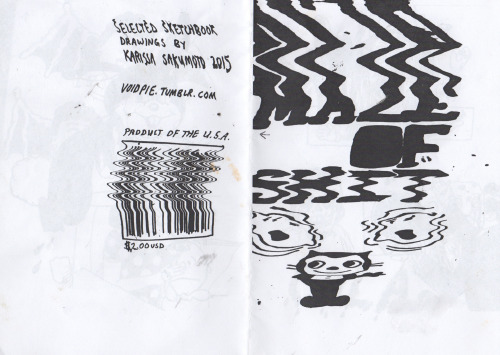 SELECTED SKETCHBOOK
DRAWINGS BY
KARISSA SAKUMOTO 2015
VOIDPIE.TUMBLR.COM
PRODUCT OF THE U.S.A.
$2.00USD
MAZE
OF
SHIT